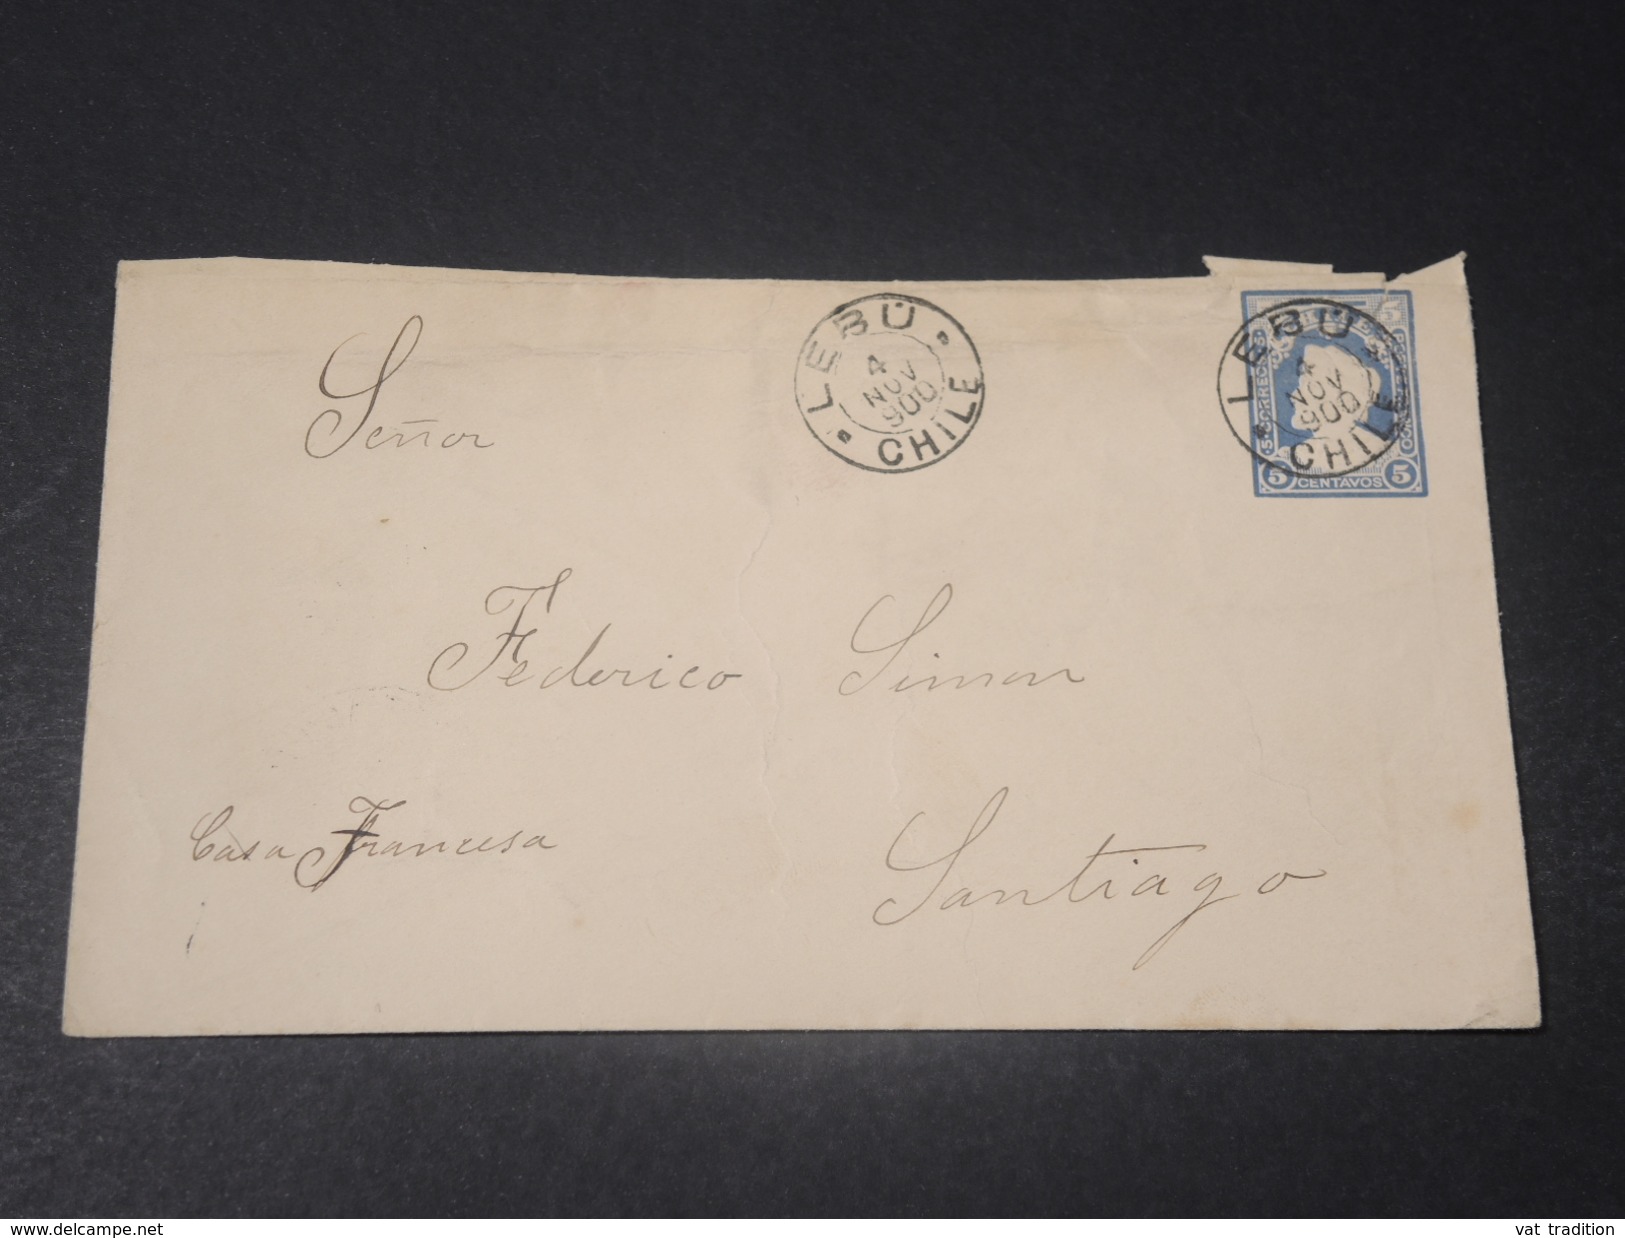 LEBÜ CHILE
4
NOV
900
LEBÜ CHILE
4
NOV
900
5
CORREOS
5 CENTAVOS 5
Señor
Federico Simon
Casa Francesa
Santiago
www.delcampe.com
vat tradition